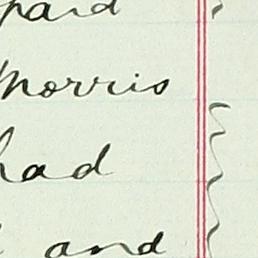 paid
Morris
had
and